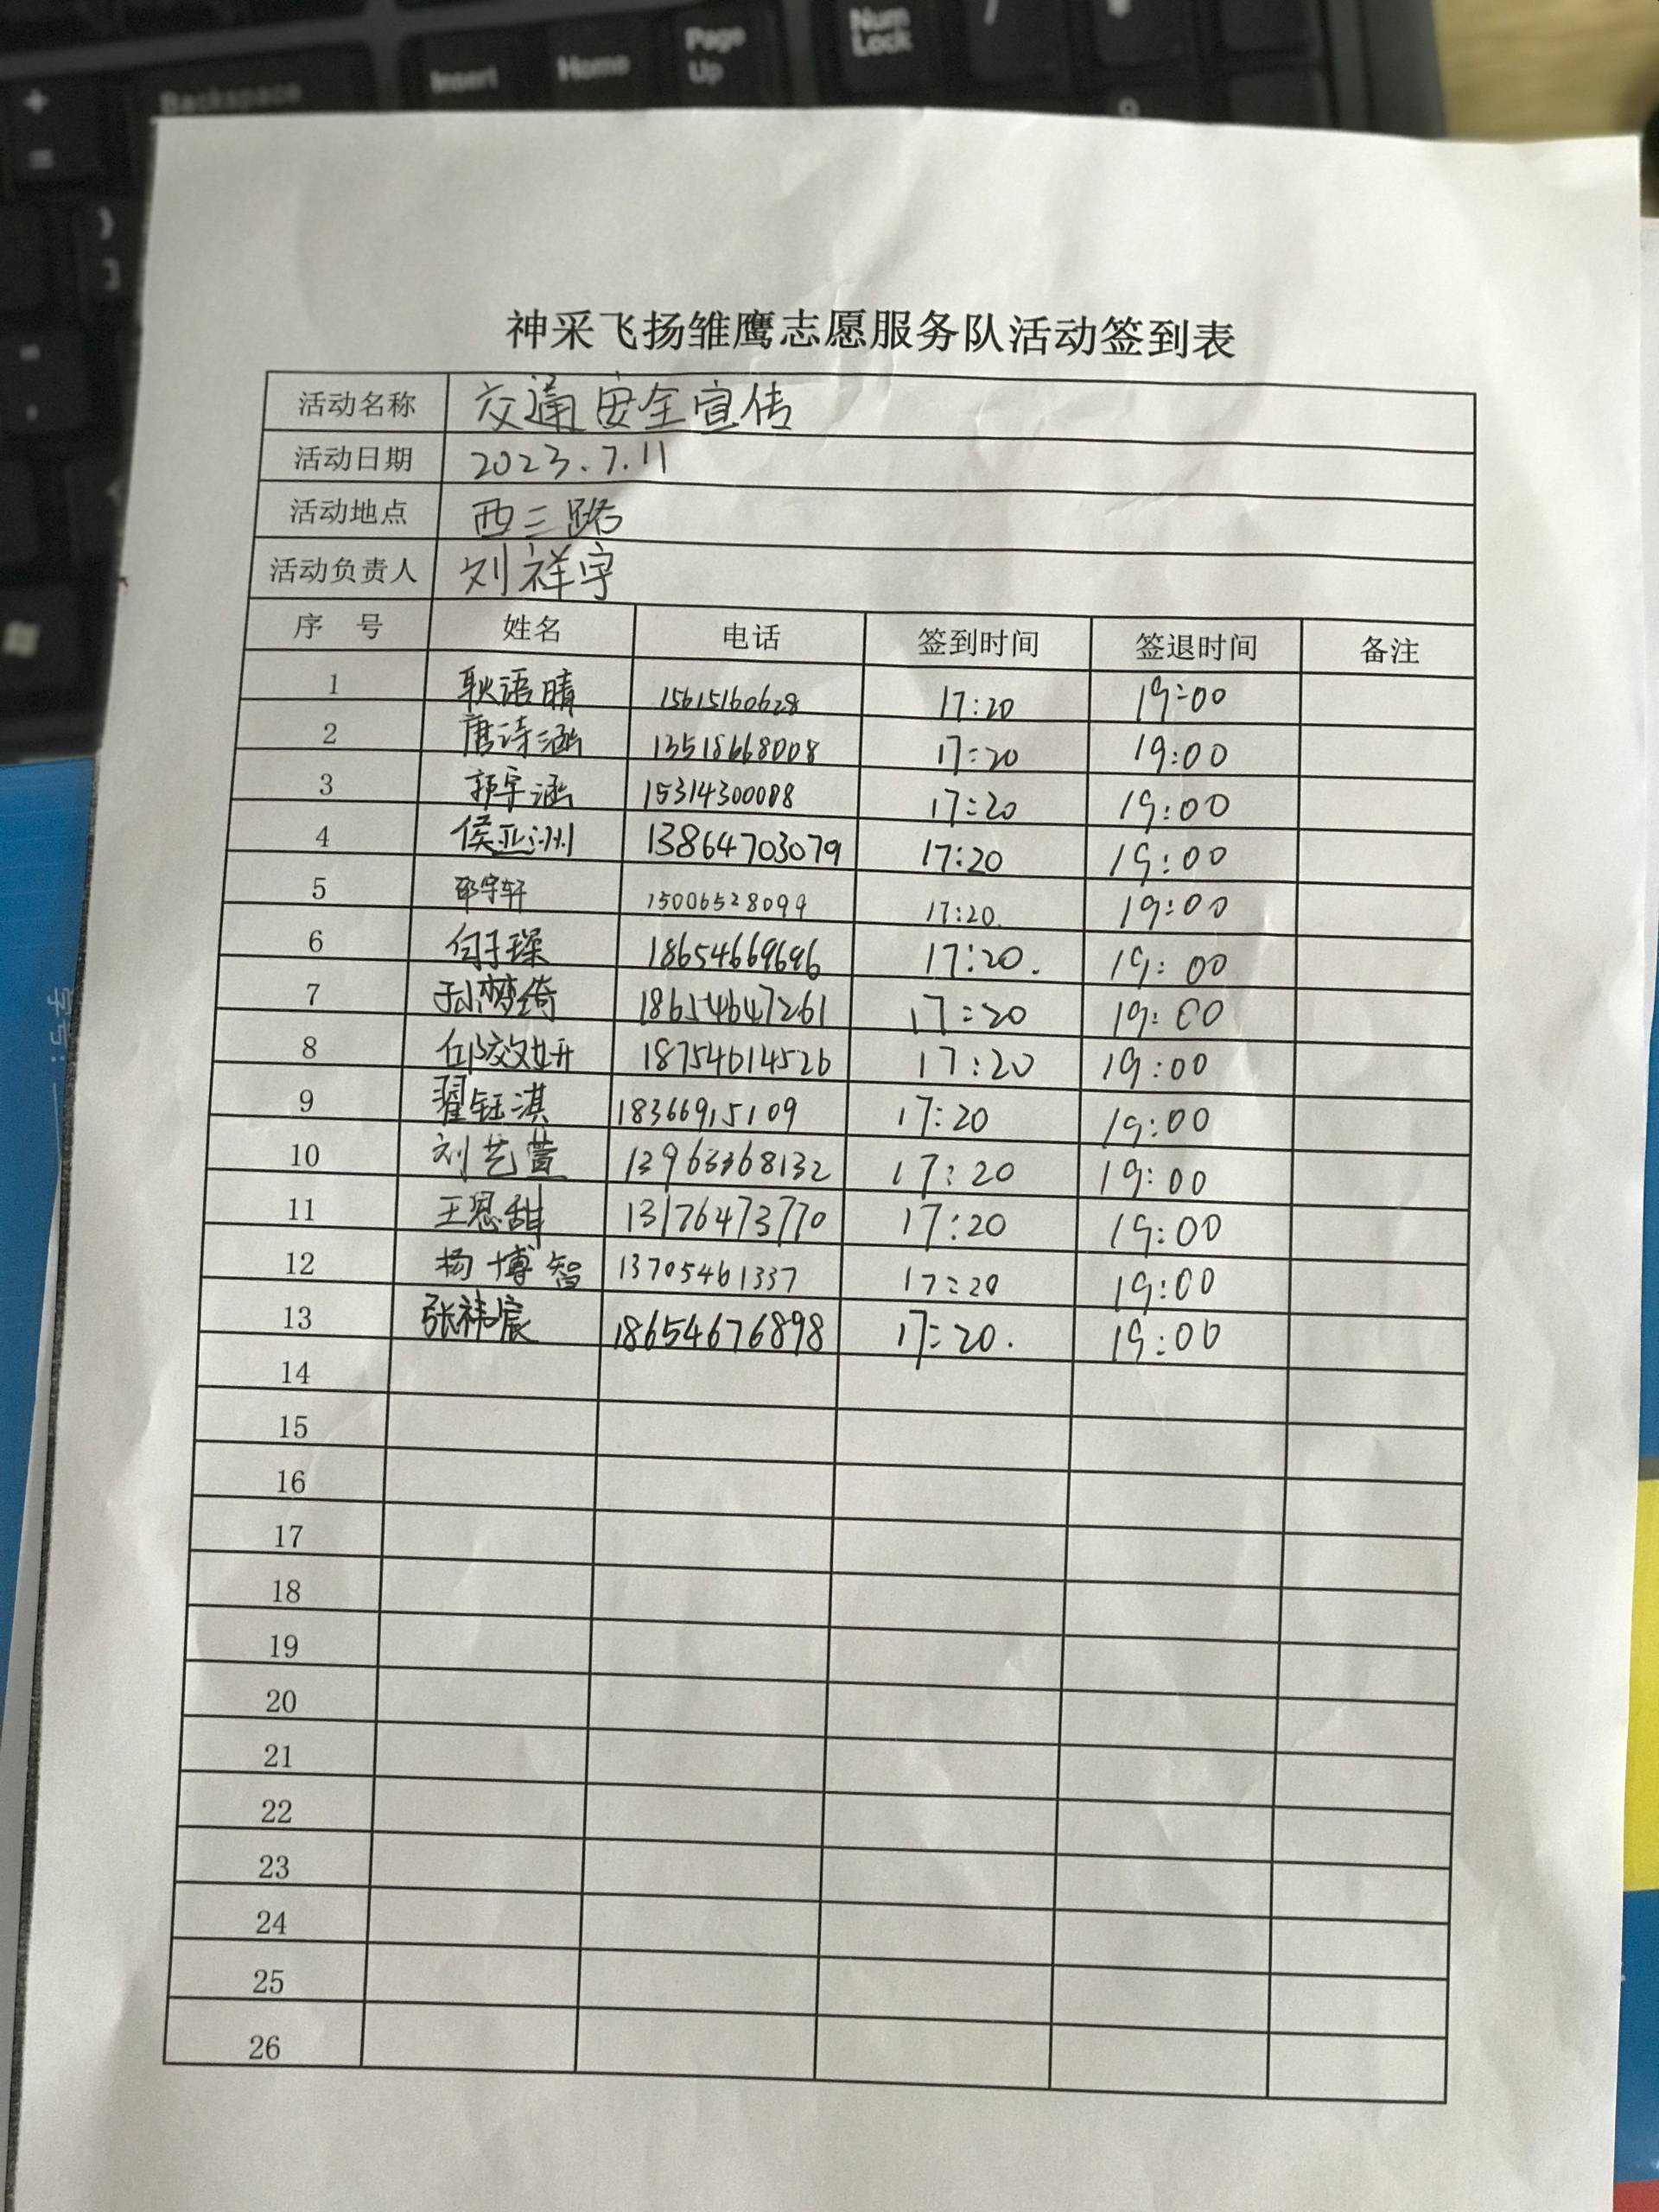 +
=
Backspace
Insert
Home
Page Up
Num Lock
/
9
神采飞扬雏鹰志愿服务队活动签到表
活动名称 交通安全宣传
活动日期 2023.7.11
活动地点 西三路
活动负责人 刘祥宇
序 号 姓名 电话 签到时间 签退时间 备注
1 耿语晴 15615160628 17:20 19:00
2 唐诗涵 13518668008 17:20 19:00
3 郭宇涵 15314300088 17:20 19:00
4 侯亚洲 13864703079 17:20 19:00
5 邵宇轩 15006528099 17:20. 19:00
6 18654669696 17:20. 19:00
7 孙梦绮 18654647261 17:20 19:00
8 18754614526 17:20 19:00
9 翟钰淇 18366915109 17:20 19:00
10 刘艺萱 13963368132 17:20 19:00
11 王思甜 13176473770 17:20 19:00
12 杨博智 13705461337 17:20 19:00
13 张祎宸 18654676898 17:20. 19:00
14
15
16
17
18
19
20
21
22
23
24
25
26